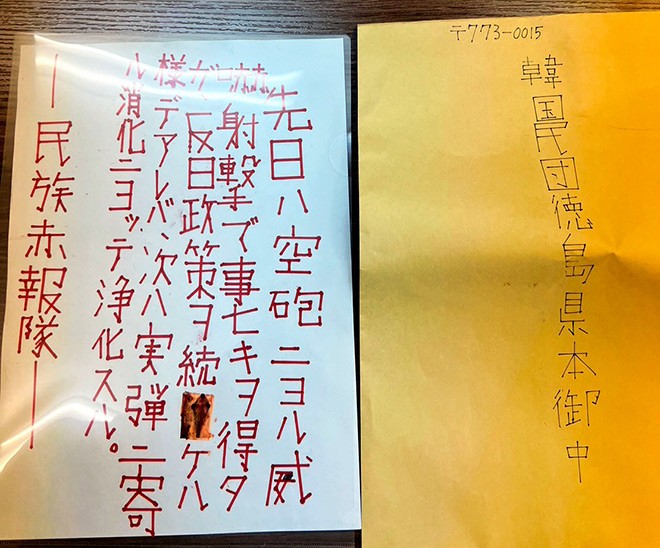 先日ハ空砲ニヨル威
嚇射撃で事ナキヲ得タ
ガ、反日政策ヲ続ケル
様デアレバ、次ハ実弾ニ寄
ル消化ニヨッテ浄化スル。
―民族赤報隊―
〒773-0015
韓国民団徳島県本御中